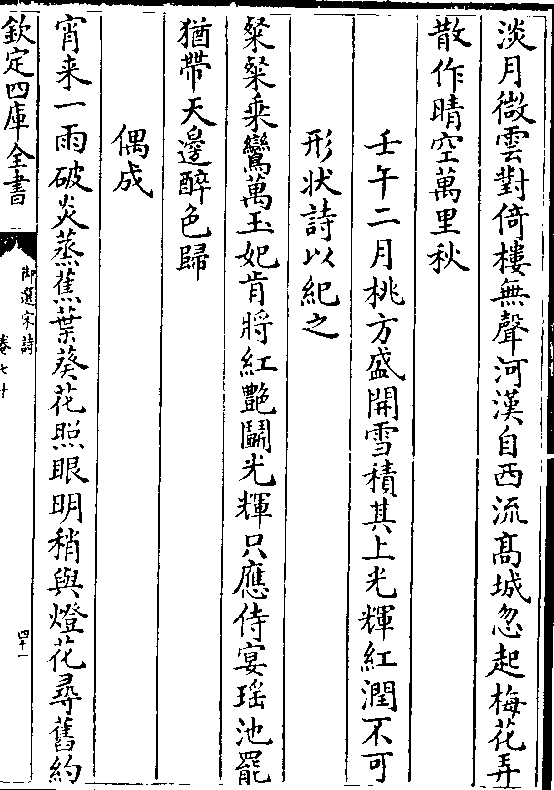 淡月微雲對倚樓無聲河漢自西流髙城忽起梅花弄
散作晴空萬里秋
壬午二月桃方盛開雪積其上光輝紅潤不可
形狀詩以紀之
粲粲乗鸞萬玉妃肯將紅艷鬭光輝只應侍宴瑶池罷
猶帶天邊醉色歸
偶成
宵来一雨破炎蒸蕉葉葵花照眼明稍與燈花尋舊約
欽定四庫全書
御選宋詩
卷七十
四十一